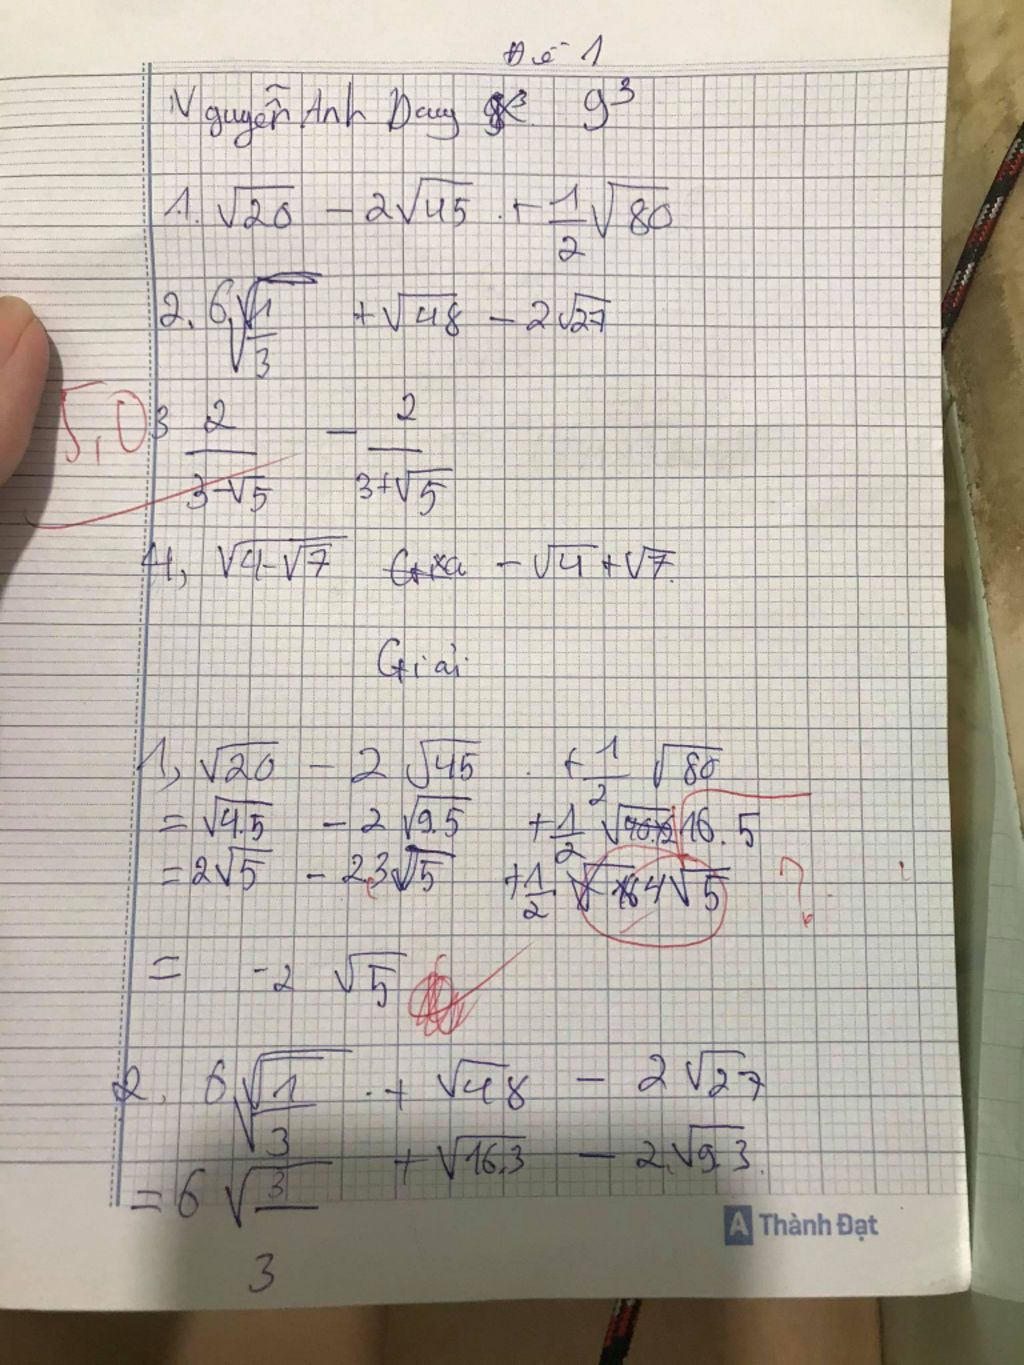 Đề 1
Nguyễn Anh Duy 9³
1. √20 - 2√45 + 1/2 √80
2. 6√(1/3) + √48 - 2√27
5,0
3 2/(3-√5) - 2/(3+√5)
4, √(4-√7) - √4+√7
Giải
1, √20 - 2 √45 + 1/2 √80
= √4.5 - 2 √9.5 + 1/2 √16.5
= 2√5 - 2.3√5 + 1/2 4√5 ?
= -2 √5
2. 6√(1/3) + √48 - 2√27
= 6 √3/3 + √16.3 - 2√9.3
A Thành Đạt